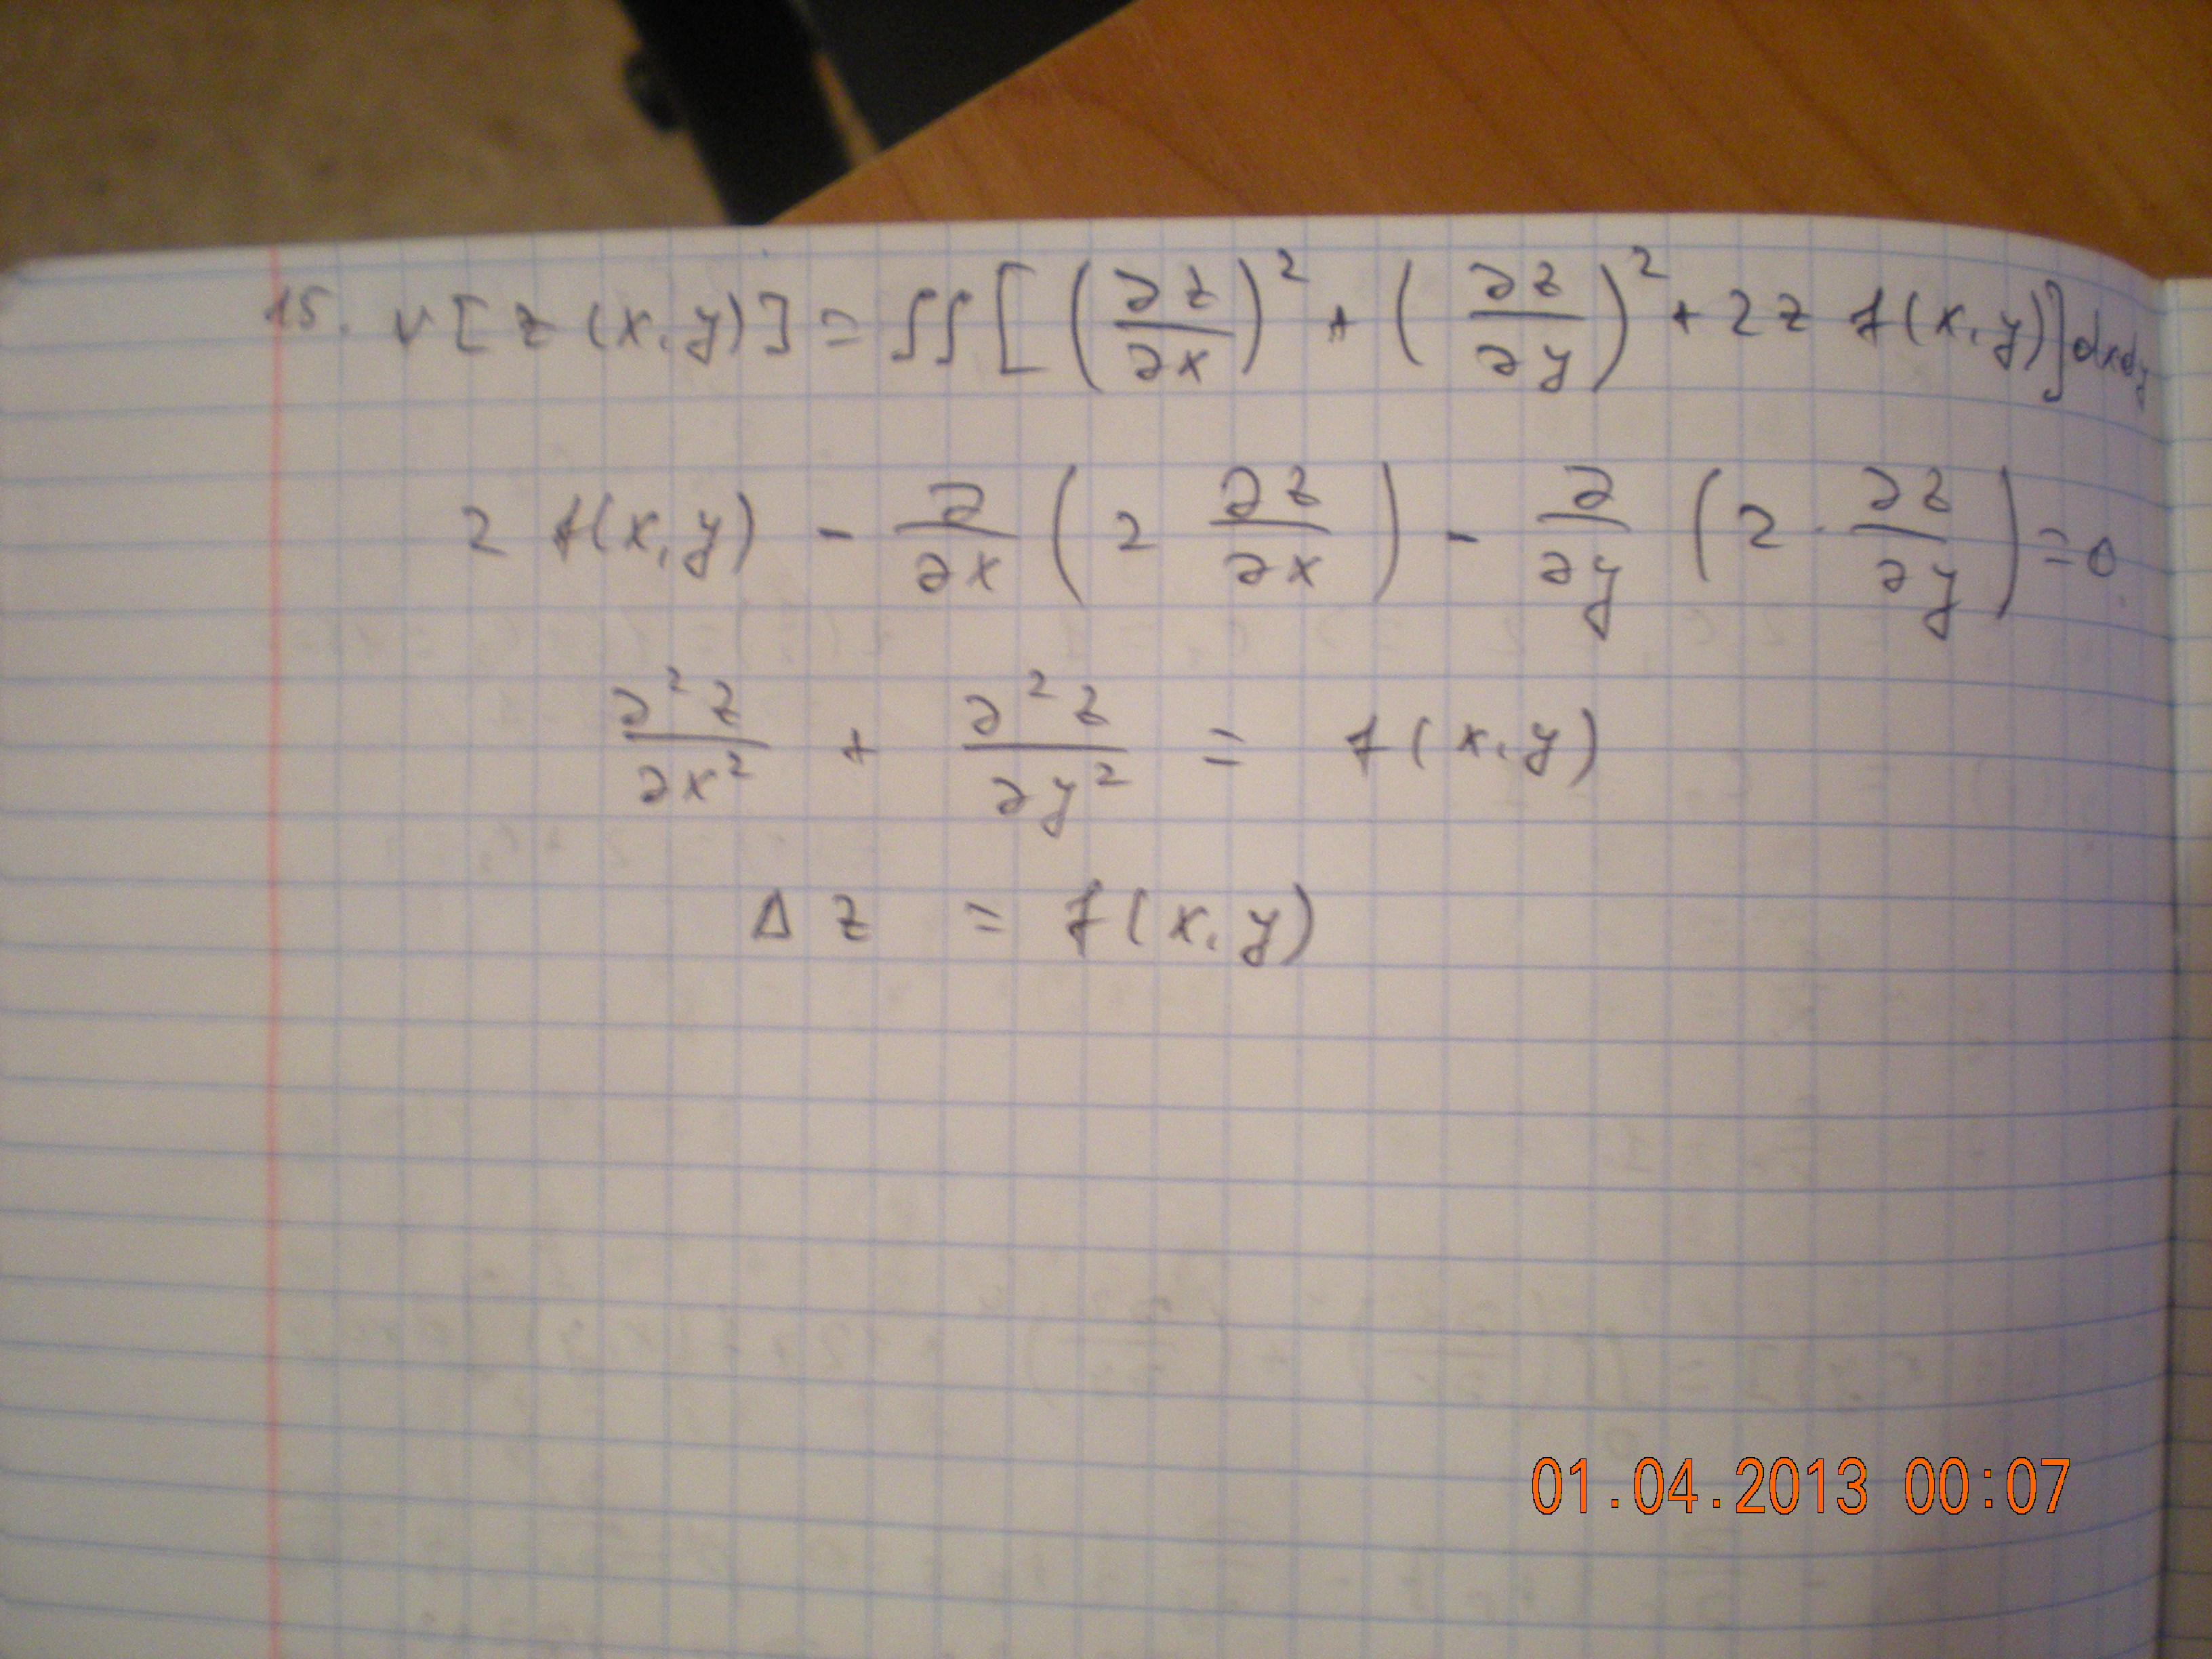 15. v[z(x,y)] = ∫∫[(∂z/∂x)² + (∂z/∂y)² + 2z f(x,y)]dxdy
2 f(x,y) - ∂/∂x (2 ∂z/∂x) - ∂/∂y (2 · ∂z/∂y) = 0
∂²z/∂x² + ∂²z/∂y² = f(x,y)
Δz = f(x,y)
01.04.2013 00:07